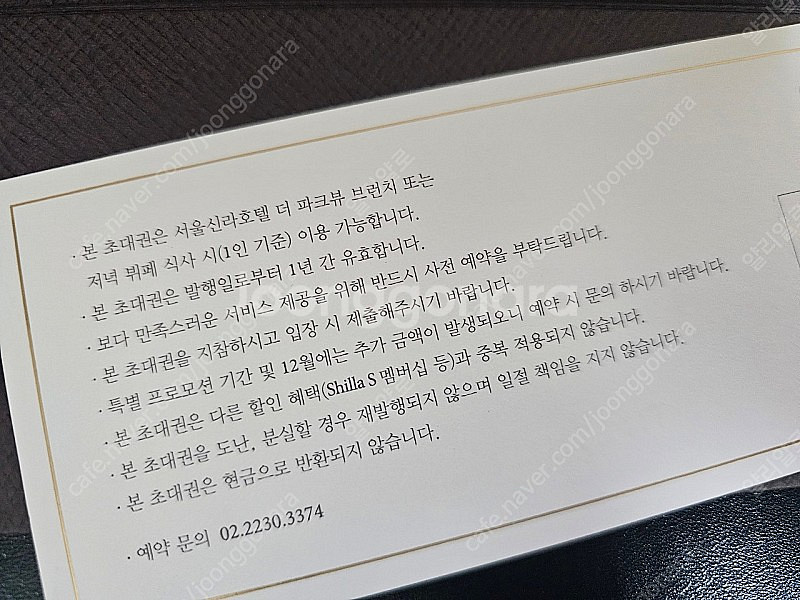 · 본 초대권은 서울신라호텔 더 파크뷰 브런치 또는
저녁 뷔페 식사 시(1인 기준) 이용 가능합니다.
· 본 초대권은 발행일로부터 1년 간 유효합니다.
· 보다 만족스러운 서비스 제공을 위해 반드시 사전 예약을 부탁드립니다.
· 본 초대권을 지참하시고 입장 시 제출해주시기 바랍니다.
· 특별 프로모션 기간 및 12월에는 추가 금액이 발생되오니 예약 시 문의 하시기 바랍니다.
· 본 초대권은 다른 할인 혜택(Shilla S 멤버십 등)과 중복 적용되지 않습니다.
· 본 초대권을 도난, 분실할 경우 재발행되지 않으며 일절 책임을 지지 않습니다.
· 본 초대권은 현금으로 반환되지 않습니다.
· 예약 문의 02.2230.3374
joonggonara
cafe.naver.com/joonggonara